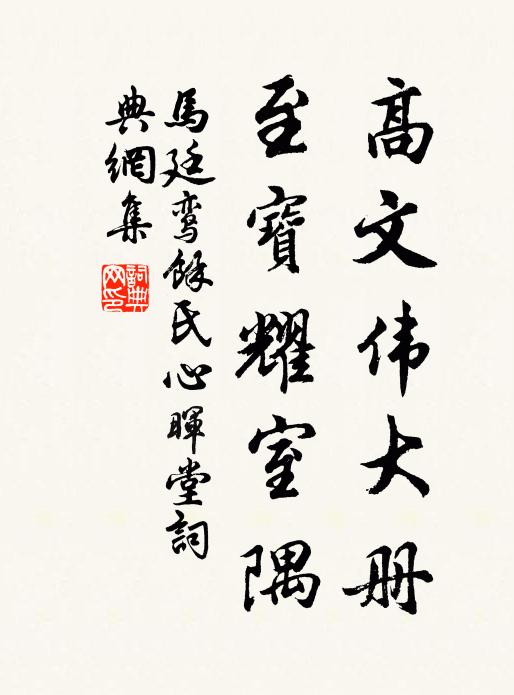 高文伟大册
至寶耀室隅
馬廷鸾餘氏心暉堂詞
典網集
詞典网印